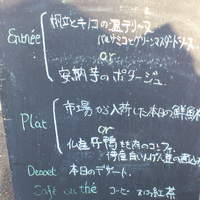 Entrée
帆立とキノコの温テリーヌ
バルサミコとグリーンマスタードソース
or
安納芋のポタージュ
Plat
市場から入荷した本日の鮮魚
or
仙産仔鴨もも肉のコンフィ
白いんげん豆の煮込み
Dessert 本日のデザート
Café ou thé コーヒー または 紅茶